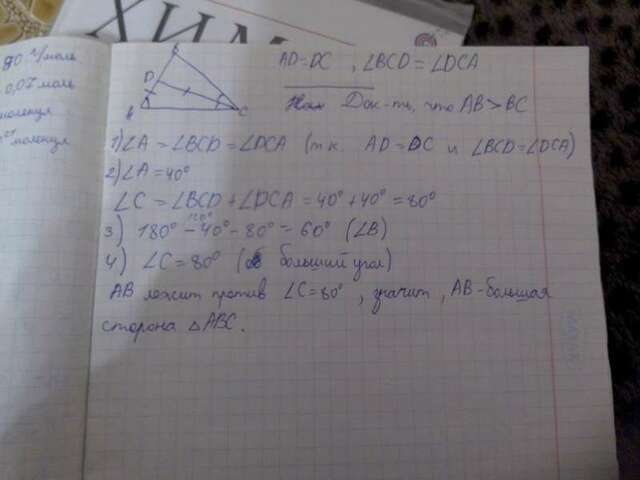 ХИМ
90 г/моль
0,07 моль
молекул
молекул
B
D
A
C
AD=DC , ∠BCD = ∠DCA
Док-ть, что AB>BC
1) ∠A = ∠BCD = ∠DCA (т.к AD=DC и ∠BCD=∠DCA)
2) ∠A = 40°
∠C = ∠BCD + ∠DCA = 40° + 40° = 80°
3) 180° - 40° - 80° = 60° (∠B)
4) ∠C = 80° (больший угол)
AB лежит против ∠C = 80° , значит , AB - большая
сторона △ABC.